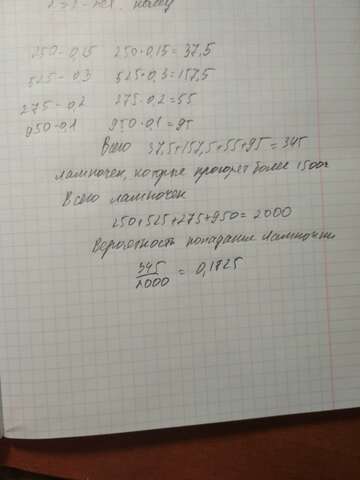 250 - 0,15 250·0,15 = 37,5
525 - 0,3 525·0,3 = 157,5
275 - 0,2 275·0,2 = 55
950 - 0,1 950·0,1 = 95
Всего 37,5+157,5+55+95 = 345
лампочек, которые прогорят более 1500ч
Всего лампочек
250+525+275+950 = 2000
Вероятность попадания лампочки
345/2000 = 0,1725